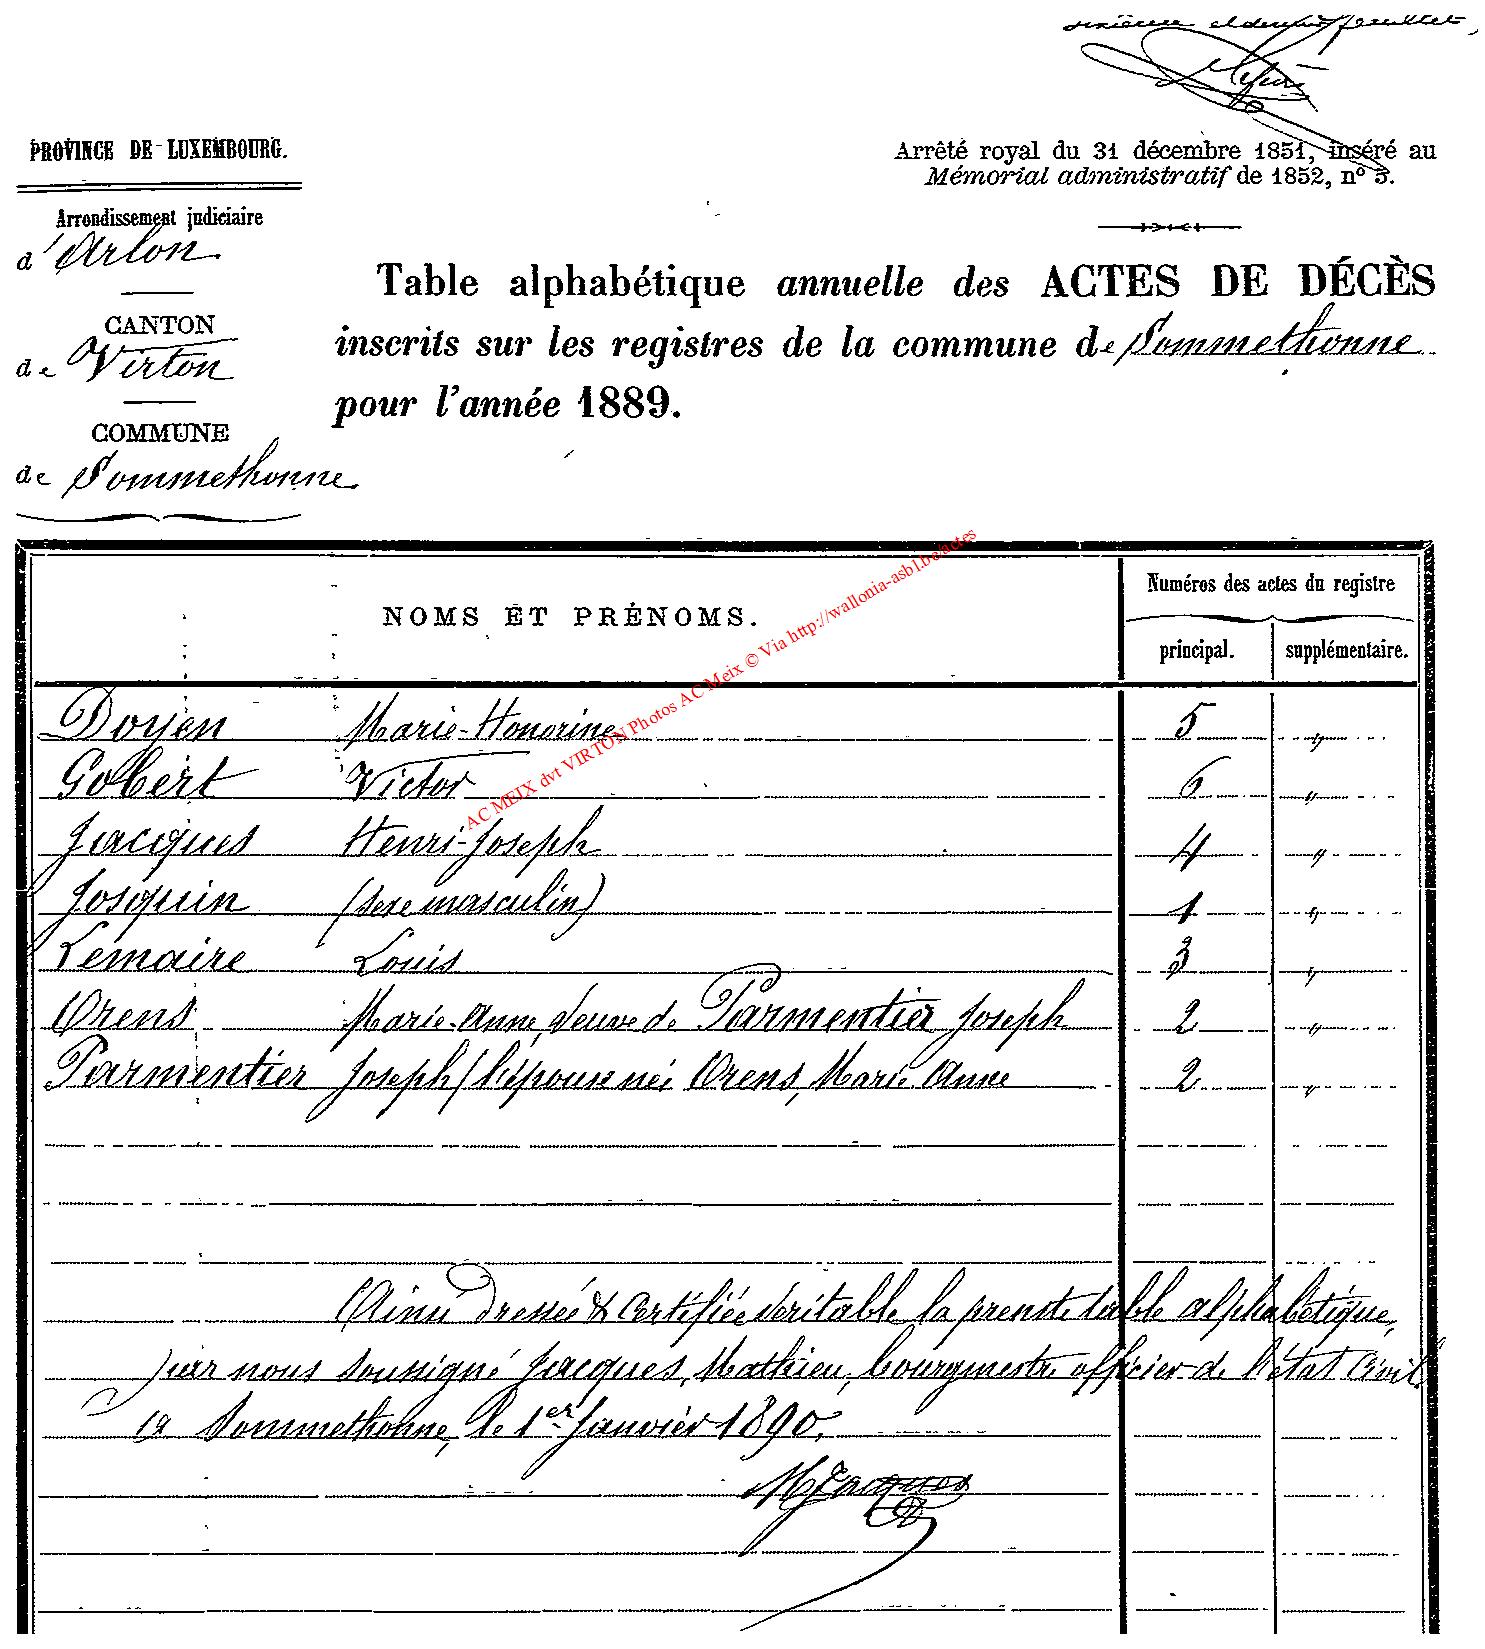 et dernier feuillet,
PROVINCE DE LUXEMBOURG.
Arrêté royal du 31 décembre 1851, inséré au
Mémorial administratif de 1852, nº 3.
Arrondissement judiciaire
d'Arlon
CANTON
de Virton
COMMUNE
de Sommethonne
Table alphabétique annuelle des ACTES DE DÉCÈS
inscrits sur les registres de la commune de Sommethonne
pour l'année 1889.
NOMS ET PRÉNOMS.
Numéros des actes du registre
principal. supplémentaire.
Doyen Marie-Honorine 5 "
Gobert Victor 6 "
Jacques Henri-Joseph 4 "
Josquin (sexe masculin) 1 "
Lemaire Louis 3 "
Orens Marie-Anne, veuve de Parmentier Joseph 2 "
Parmentier Joseph (l'épouse née Orens, Marie-Anne 2 "
Ainsi dressée & certifiée véritable la présente table alphabétique,
par nous soussigné Jacques, Mathieu, bourgmestre officier de l'état civil
à Sommethonne, le 1er Janvier 1890.
MJacques
AC MEIX dvt VIRTON Photos AC Meix © Via http://wallonia-asbl.be/actes